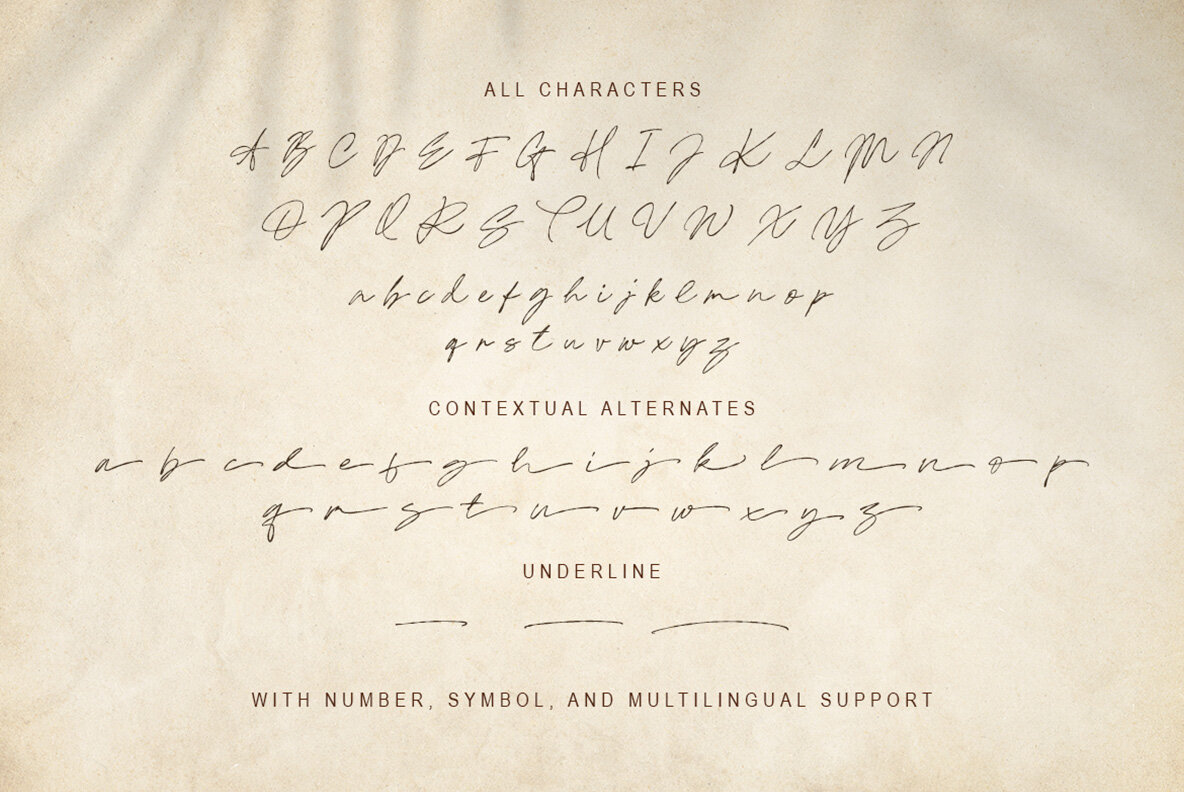 ALL CHARACTERS
A B C D E F G H I J K L M N
O P Q R S T U V W X Y Z
a b c d e f g h i j k l m n o p
q r s t u v w x y z
CONTEXTUAL ALTERNATES
a b c d e f g h i j k l m n o p
q r s t u v w x y z
UNDERLINE
WITH NUMBER, SYMBOL, AND MULTILINGUAL SUPPORT